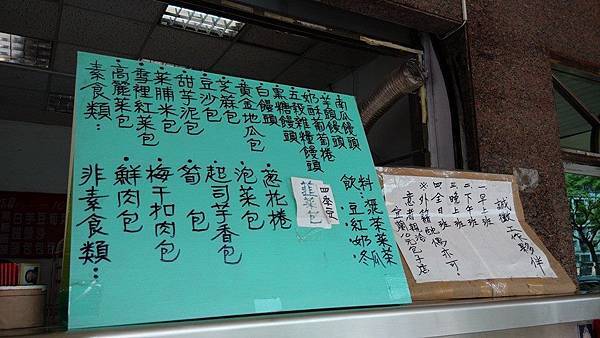 素食類：
・高麗菜包
・雪裡紅菜包
・菜脯米包
甜芋泥包
・豆沙包
・芝麻包
黃金地瓜包
白饅頭
黑糖饅頭
五穀雜糧饅頭
奶酥葡萄捲
芋頭饅頭
南瓜饅頭
非素食類：
・鮮肉包
・梅干扣肉包
・筍包
・起司芋香包
・泡菜包
・蔥花捲
韭菜包
四季豆
飲料
豆漿
紅茶
奶茶
冬瓜茶
誠徵工作夥伴
一早上班
二下午班
三晚上班
四全日班
※外籍配偶亦可.
意者請洽